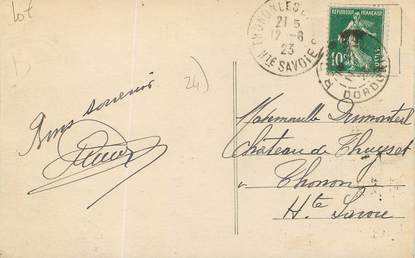 Lot
THONON LES
21 5
12 - 6
23
Hte SAVOIE
REPUBLIQUE FRANÇAISE
10c
DORDOGNE
24)
Bons souvenirs
Mademoiselle Dumonteil
Château de Thuyset
à Thonon
Hte Savoie